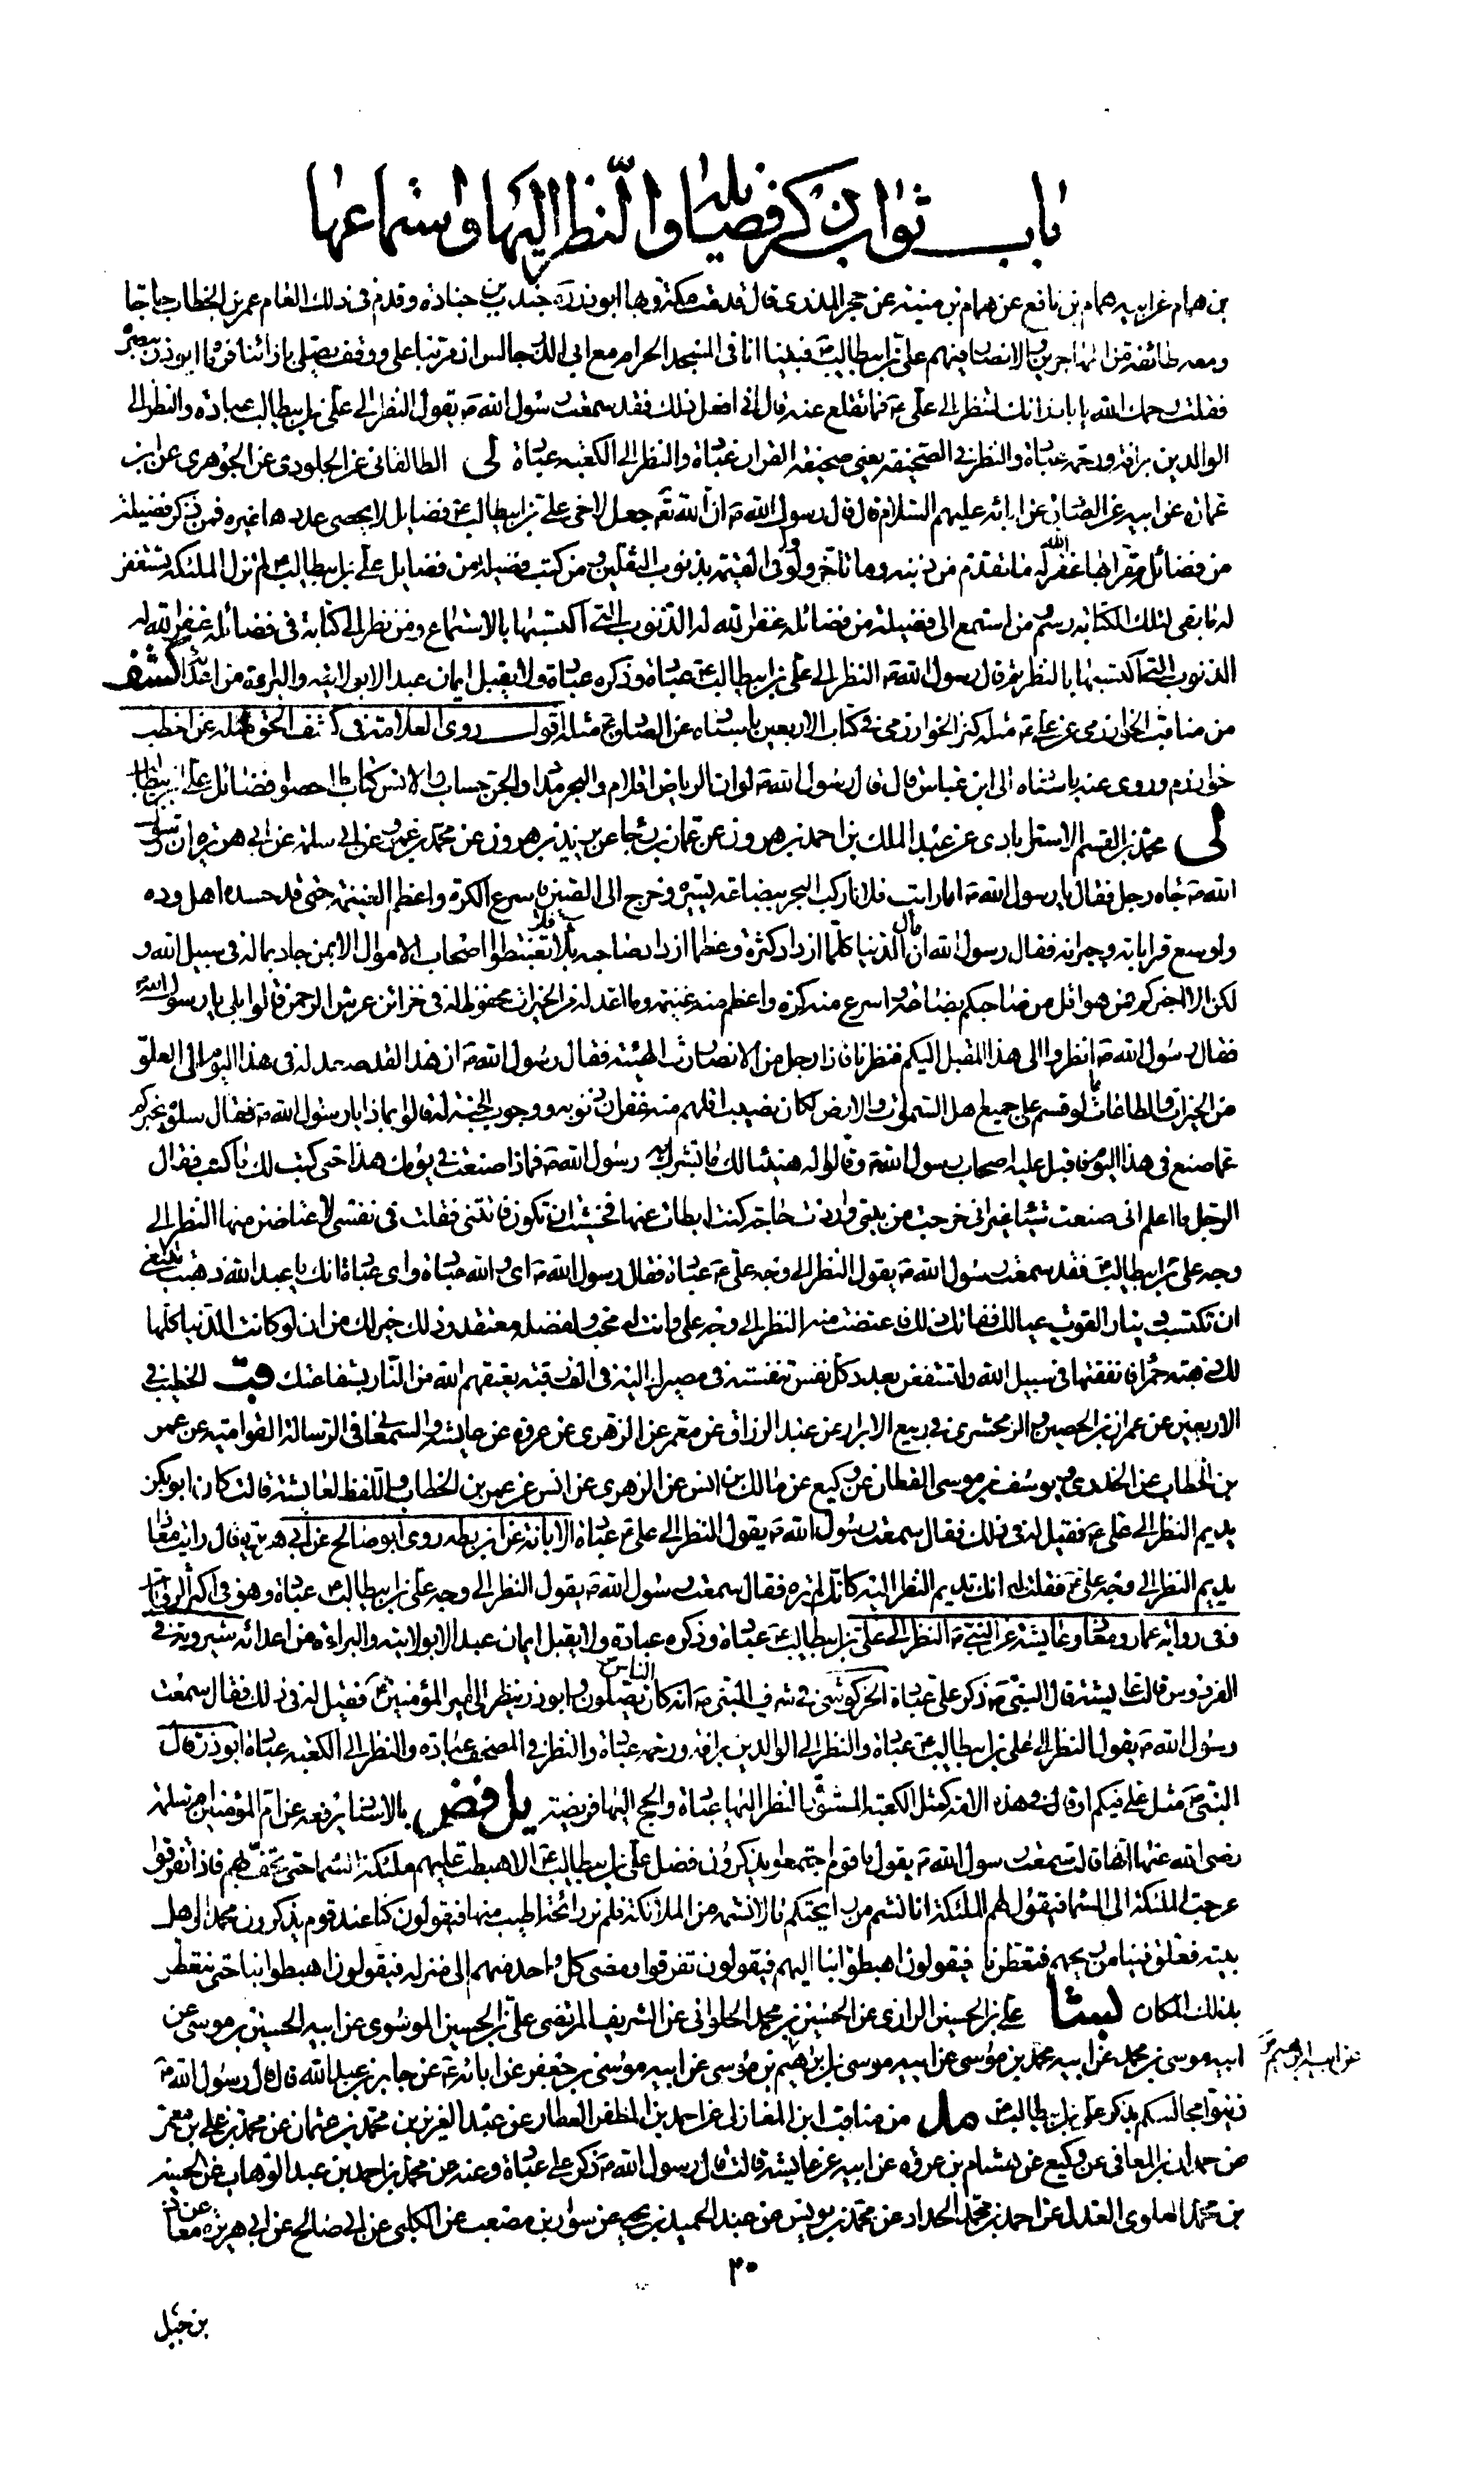 باب ثواب ذكر فضائله والنظر اليها واستماعها
بن همام عن ابيه همام بن نافع عن همام بن منبه عن حجر المذرى قال قدمت مكة وبها ابو ذر ره جندب بن جنادة وقدم فى ذلك العام عمر بن الخطاب حاجا
ومعه طائفة من المهاجرين والانصار فيهم على بن ابيطالب ع فبينا انا فى المسجد الحرام مع ابى ذر جالس اذ مر بنا على ووقف يصلى بازائنا فرماه ابو ذر ببصره
فقلت رحمك الله يا باذر انك لتنظر الى على ع فما تقلع عنه قال انى افعل ذلك فقد سمعت رسول الله ص يقول النظر الى على بن ابيطالب عبادة والنظر الى
الوالدين برافة ورحمة عبادة والنظر فى الصحيفة يعنى صحيفة القران عبادة والنظر الى الكعبة عبادة لى الطالقانى عن الجلودى عن الجوهرى عن ابن
عمارة عن ابيه عن الصادق عن ابائه عليهم السلام قال قال رسول الله ص ان الله تع جعل لاخى على بن ابيطالب ع فضايل لا يحصى عددها غيره فمن ذكر فضيلة
من فضائله مقرا بها غفر الله له ما تقدم من ذنبه وما تاخر ولو وافى القيمة بذنوب الثقلين ومن كتب فضيلة من فضايل على بن ابيطالب ع لم تزل الملئكة تستغفر
له ما بقى لتلك الكتابة رسم ومن استمع الى فضيلة من فضائله غفر الله له الذنوب التى اكتسبها بالاستماع ومن نظر الى كتابة فى فضائله غفر الله له
الذنوب التى اكتسبها بالنظر ثم قال رسول الله ص النظر الى على بن ابيطالب ع عبادة وذكره عبادة ولا يقبل ايمان عبد الا بولايته والبراءة من اعدائه كشف
من مناقب الخوارزمى عن على ع مثله كنز الخوارزمى فى كتاب الاربعين باسناده عن الصادق ع مثله اقول روى العلامة فى كشف الحق مثله عن اخطب
خوارزم وروى عنه باسناده الى ابن عباس قال قال رسول الله ص لو ان الرياض اقلام والبحر مداد والجن حساب والانس كتاب ما احصوا فضائل على بن ابيطالب
لى محمد بن القسم الاسترابادى عن عبد الملك بن احمد بن هرون عن عمار بن رجا عن يزيد بن هرون عن محمد بن عمرو عن ابى سلمة عن ابى هريرة ان رسول
الله ص جاءه رجل فقال يا رسول الله ص اما رايت فلانا ركب البحر ببضاعة يسيرة وخرج الى الصين فاسرع الكرة واعظم الغنيمة حتى قد حسده اهل وده
واوسع قراباته وجيرانه فقال رسول الله ان مال الدنيا كلما ازداد كثرة وعظما ازداد صاحبه بلاء فلا تغتبطوا اصحاب الاموال الا بمن جاد بماله فى سبيل الله و
لكن الا اخبركم بمن هو اقل من صاحبكم بضاعة واسرع منه كرة واعظم منه غنيمة وما اعد له من الخيرات محفوظ له فى خزائن عرش الرحمن قالوا بلى يا رسول الله
فقال رسول الله ص انظروا الى هذا المقبل اليكم فنظرنا فاذا رجل من الانصار رث الهيئة فقال رسول الله ص ان هذا لقد صعد له فى هذا اليوم الى العلو
من الخيرات والطاعات ما لو قسم على جميع اهل السموات والارض لكان نصيب اقلهم منه غفران ذنوبه ووجوب الجنة له قالوا بماذا يا رسول الله ص فقال سلوه يخبركم
عما صنع فى هذا اليوم فاقبل عليه اصحاب رسول الله ص وقالوا له هنيئا لك ما بشرك به رسول الله ص فماذا صنعت فى يومك هذا حتى كتب لك ما كتب فقال
الرجل ما اعلم انى صنعت شيئا غير انى خرجت من بيتى واردت حاجة كنت ابطات عنها فخشيت ان تكون فاتتنى فقلت فى نفسى لاعتاضن منها النظر الى
وجه على بن ابيطالب ع فقد سمعت رسول الله ص يقول النظر الى وجه على ع عبادة فقال رسول الله ص اى والله عبادة واى عبادة انك يا عبد الله ذهبت تبتغى
ان تكتسب دينارا لقوت عيالك ففاتك ذلك فاعتضت منه النظر الى وجه على وانت له محب ولفضله معتقد وذلك خير لك من ان لو كانت الدنيا كلها
لك ذهبة حمراء فانفقتها فى سبيل الله ولتشفعن بعدد كل نفس تنفسته فى مصيرك اليه فى الف رقبة يعتقهم الله من النار بشفاعتك قب الخطيب فى
الاربعين عن عمران بن الحصين والزمخشرى فى ربيع الابرار عن عبد الرزاق عن معمر عن الزهرى عن عروة عن عايشة والسمعانى فى الرسالة القوامية عن عمر
بن الخطاب عن الخدرى ويوسف بن موسى القطان عن وكيع عن مالك بن انس عن الزهرى عن انس عن عمر بن الخطاب واللفظ لعايشة قالت كان ابو بكر
يديم النظر الى على ع فقيل له فى ذلك فقال سمعت رسول الله ص يقول النظر الى على ع عبادة الابانة عن ابن بطة روى ابو صالح عن ابى هريرة قال رايت معاذا
يديم النظر الى وجه على ع فقلت له انك تديم النظر اليه كانك لم تره فقال سمعت رسول الله ص يقول النظر الى وجه على بن ابيطالب ع عبادة وهو فى اكثر الروايات
وفى رواية عمار ومعاذ وعايشة عن النبى ص النظر الى على بن ابيطالب ع عبادة وذكره عبادة ولا يقبل ايمان عبد الا بولايته والبراءة من اعدائه شيرويه فى
الفردوس قالت عايشة قال النبى ص ذكر على عبادة الخركوشى فى شرف النبى ص انه كان الناس يصلون وابو ذر ينظر الى امير المؤمنين ع فقيل له فى ذلك فقال سمعت
رسول الله ص يقول النظر الى على بن ابيطالب ع عبادة والنظر الى الوالدين برافة ورحمة عبادة والنظر فى المصحف عبادة والنظر الى الكعبة عبادة ابو ذر قال
النبى ص مثل على فيكم او قال فى هذه الامة كمثل الكعبة المستورة النظر اليها عبادة والحج اليها فريضة يل فض بالاسناد يرفعه عن ام المؤمنين ام سلمة
رضى الله عنها انها قالت سمعت رسول الله ص يقول ما قوم اجتمعوا يذكرون فضل على بن ابيطالب ع الا هبطت عليهم ملئكة السماء حتى تحف بهم فاذا تفرقوا
عرجت الملئكة الى السماء فيقول لهم الملئكة انا لنشم من رايحتكم ما لا نشمه من الملائكة فلم نر رائحة اطيب منها فيقولون كنا عند قوم يذكرون محمدا واهل
بيته فعلق فينا من ريحهم فتعطرنا فيقولون اهبطوا بنا اليهم فيقولون تفرقوا ومضى كل واحد منهم الى منزله فيقولون اهبطوا بنا حتى نتعطر
بذلك المكان بشا على بن الحسين الرازى عن الحسين بن محمد الحلوانى عن الشريف المرتضى على بن الحسين الموسوى عن ابيه الحسين بن موسى عن
ابيه موسى بن محمد عن ابيه محمد بن موسى عن ابيه موسى بن ابراهيم بن موسى عن ابيه موسى بن جعفر عن ابائه ع عن جابر بن عبد الله قال قال رسول الله ص
عن ابيه ابراهيم
زينوا مجالسكم بذكر على بن ابيطالب ع مد من مناقب ابن المغازلى عن احمد بن المظفر العطار عن عبد العزيز بن محمد بن عثمان عن محمد بن على بن معمر
عن حمدان بن المعافى عن وكيع عن هشام بن عروة عن ابيه عن عايشة قالت قال رسول الله ص ذكر على عبادة وعنه عن محمد بن احمد بن عبد الوهاب عن الحسين
بن محمد العلوى العدل عن احمد بن محمد الحداد عن محمد بن يونس عن عبد الحميد بن بحر عن سوار بن مصعب عن الكلبى عن ابى صالح عن ابى هريرة عن معاذ
٣٠
بن جبل